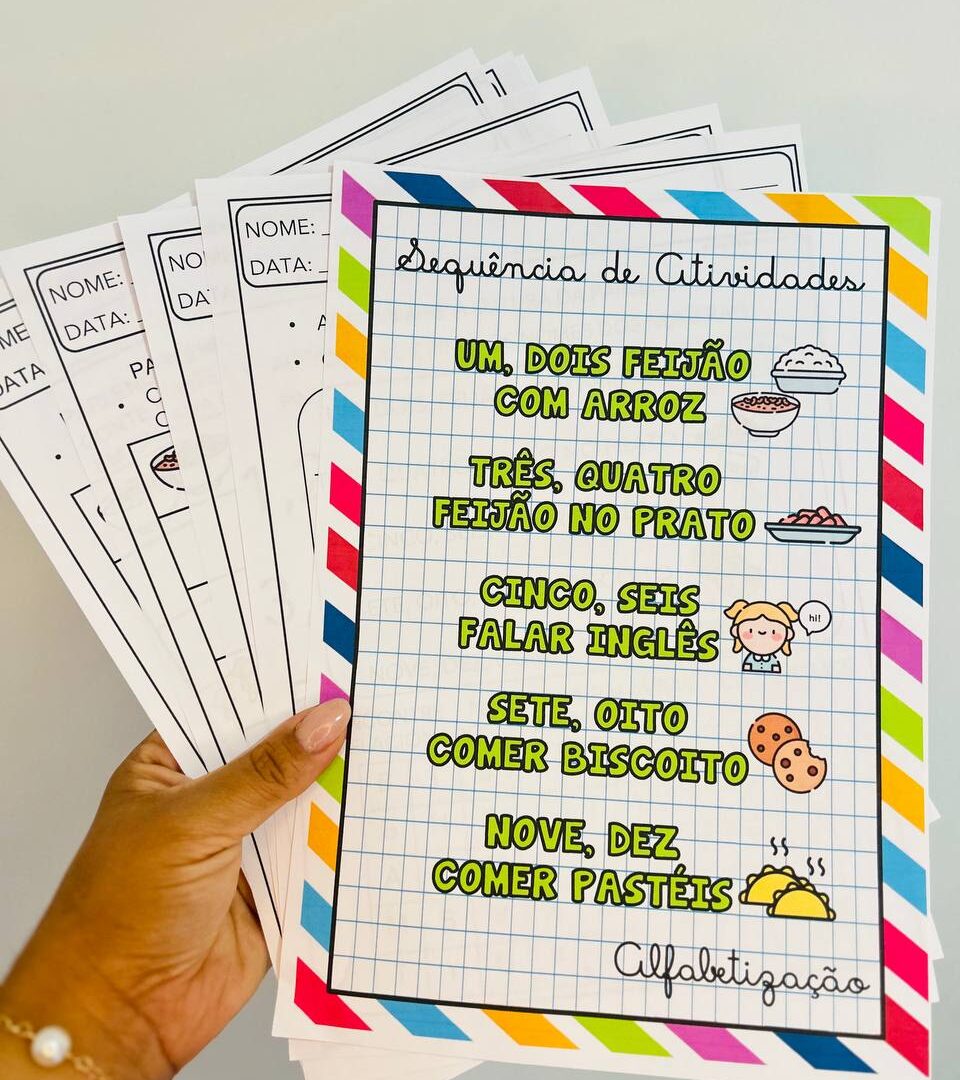 Sequência de Atividades
UM, DOIS FEIJÃO
COM ARROZ
TRÊS, QUATRO
FEIJÃO NO PRATO
CINCO, SEIS
FALAR INGLÊS
hi!
SETE, OITO
COMER BISCOITO
NOVE, DEZ
COMER PASTÉIS
Alfabetização
NOME:
DATA:
NOME:
DATA: